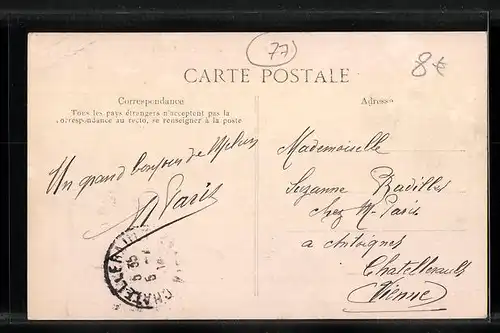 77
8*
CARTE POSTALE
Correspondance
Tous les pays étrangers n'acceptent pas la
correspondance au recto, se renseigner à la poste
Adresse
Un grand bonjour de Melun
Paris
Mademoiselle
Suzanne
chez Mr Paris
a Antoigné
Chatellerault
Vienne
CHATELLERAULT